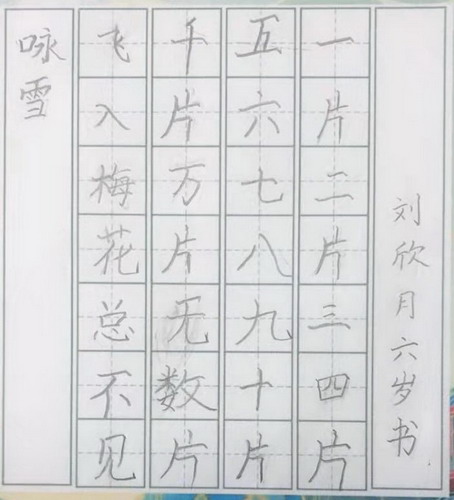 刘欣月六岁书
一片二片三四片
五六七八九十片
千片万片无数片
飞入梅花总不见
咏雪